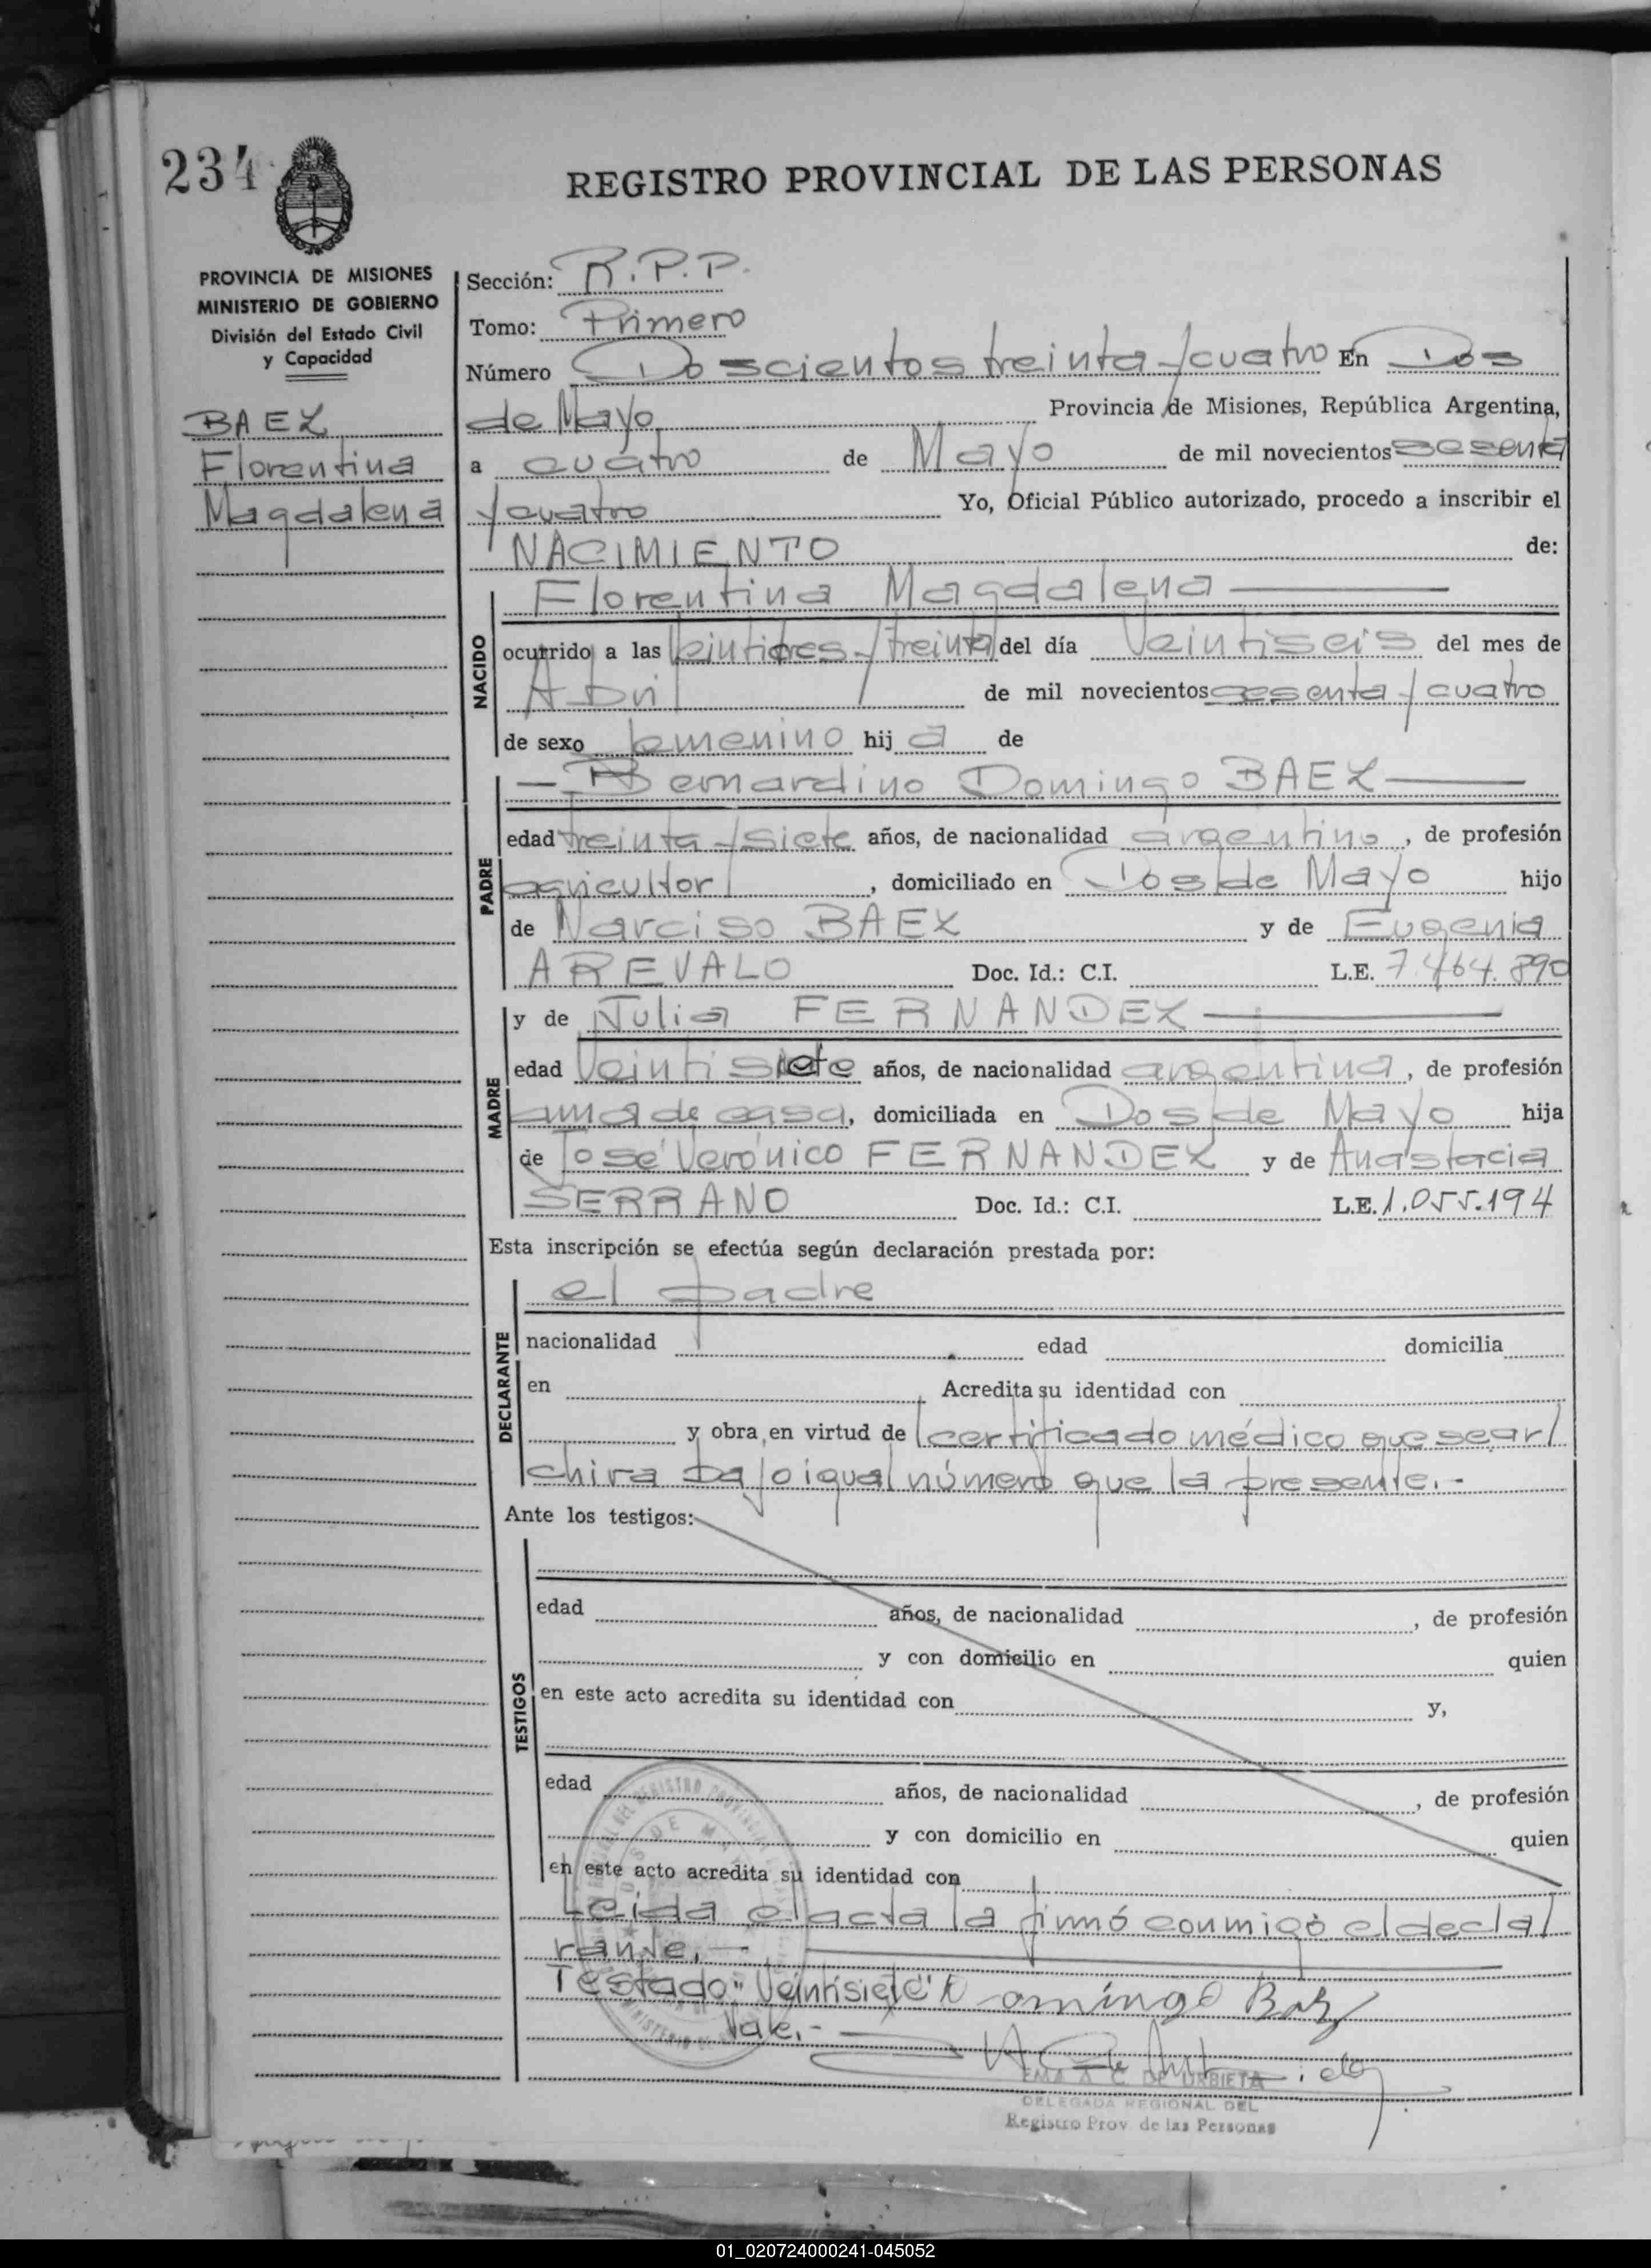 234
REGISTRO PROVINCIAL DE LAS PERSONAS
PROVINCIA DE MISIONES
MINISTERIO DE GOBIERNO
División del Estado Civil
y Capacidad
BAEZ
Florentina
Magdalena
Sección: R.P.P.
Tomo: Primero
Número Doscientos treinta y cuatro En Dos
de Mayo Provincia de Misiones, República Argentina,
a cuatro de Mayo de mil novecientos sesenta
y cuatro Yo, Oficial Público autorizado, procedo a inscribir el
NACIMIENTO de:
Florentina Magdalena
NACIDO
ocurrido a las veintitres y treinta del día Veintiseis del mes de
Abril de mil novecientos sesenta y cuatro
de sexo femenino hij a de
Bernardino Domingo BAEZ
PADRE
edad treinta y siete años, de nacionalidad argentino, de profesión
agricultor, domiciliado en Dos de Mayo hijo
de Narciso BAEZ y de Eugenia
AREVALO Doc. Id.: C.I. L.E. 7.464.890
y de Julia FERNANDEZ
MADRE
edad Veintisiete años, de nacionalidad argentina, de profesión
ama de casa, domiciliada en Dos de Mayo hija
de José Verónico FERNANDEZ y de Anastacia
SERRANO Doc. Id.: C.I. L.E. 1.055.194
Esta inscripción se efectúa según declaración prestada por:
el padre
DECLARANTE
nacionalidad edad domicilia
en Acredita su identidad con
y obra en virtud de certificado médico que se ar/
chiva bajo igual número que la presente.-
Ante los testigos:
TESTIGOS
edad años, de nacionalidad , de profesión
y con domicilio en quien
en este acto acredita su identidad con y,
edad años, de nacionalidad , de profesión
y con domicilio en quien
en este acto acredita su identidad con
Leida el acta la firmó conmigo el decla/
rante.-
Testado: "Veintisiete" Domingo Baez
Vale.-
EMA A. C. DE URBIETA
DELEGADA REGIONAL DEL
Registro Prov. de las Personas
01_020724000241-045052